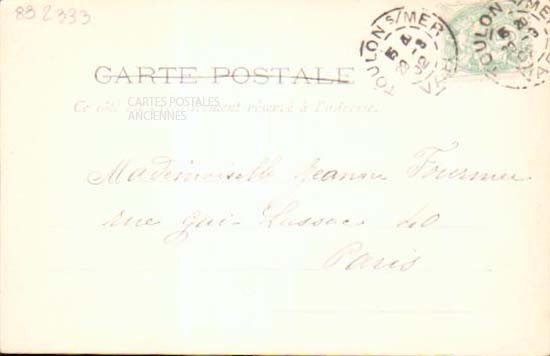 832333
TOULON S/MER
TOULON S/MER
CARTE POSTALE
Ce côté est exclusivement réservé à l'adresse.
CARTES POSTALES
ANCIENNES
Mademoiselle Jeanne Fournier
rue Gai-Lussac 40
Paris